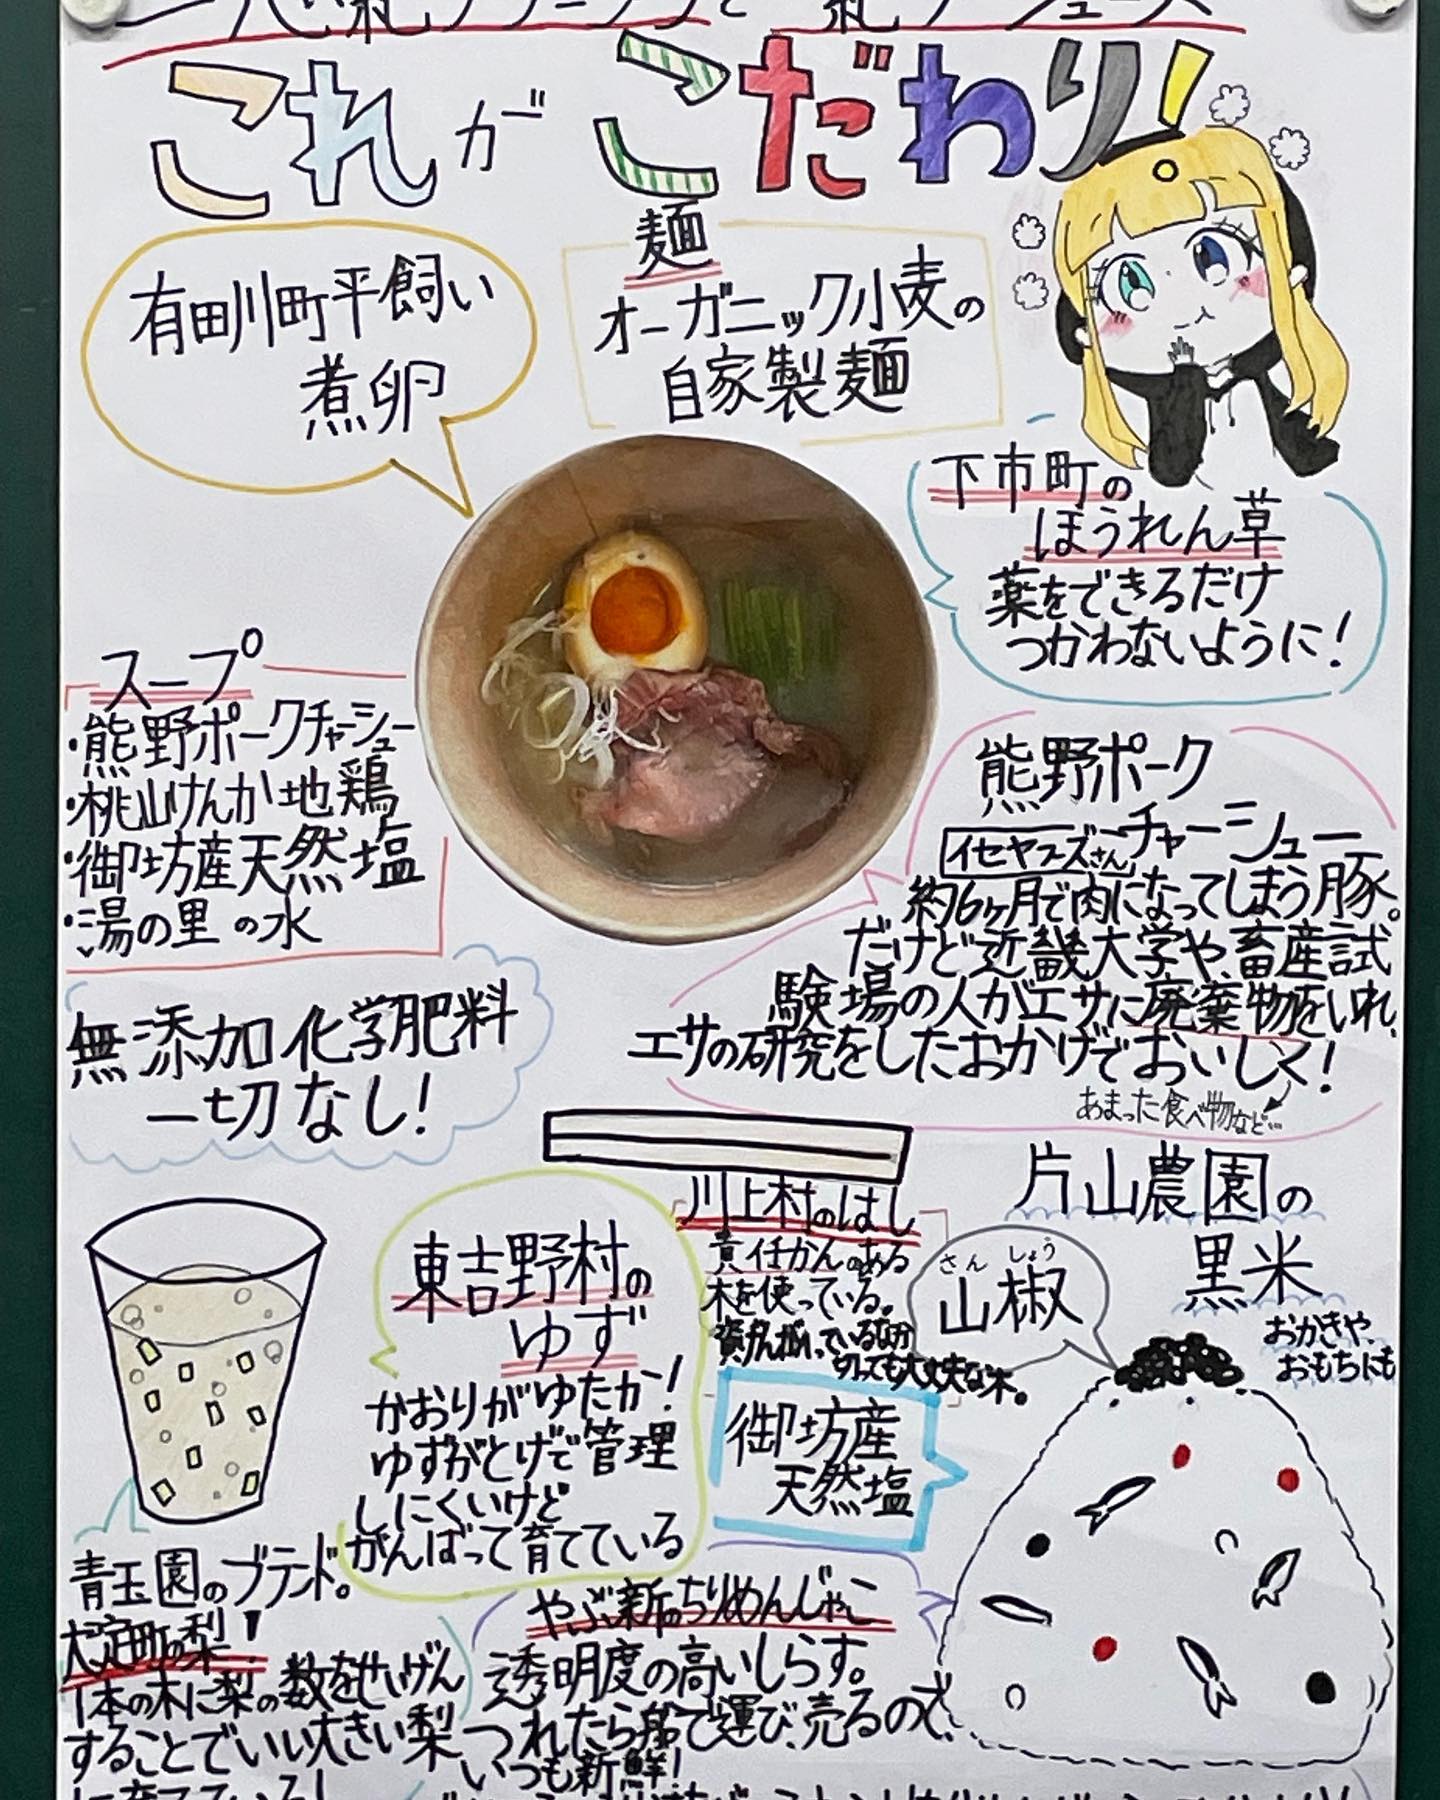 これがこだわり!
有田川町平飼い
煮卵
麺
オーガニック小麦の
自家製麺
下市町の
ほうれん草
薬をできるだけ
つかわないように!
スープ
・熊野ポークチャーシュー
・桃山けんか地鶏
・御坊産天然塩
・湯の里の水
熊野ポーク
チャーシュー
イセヤフーズさん
約6ヶ月で肉になってしまう豚。
だけど近畿大学や、畜産試
験場の人がエサに廃棄物をいれ、
エサの研究をしたおかげでおいしく!
あまった食べ物など…
無添加化学肥料
一切なし!
川上村のはし
責任かんのある
木を使っている。
切っても大丈夫な木。
片山農園の
黒米
おかきや、
おもちにも
さんしょう
山椒
東吉野村の
ゆず
かおりがゆたか!
ゆずがとげで管理
しにくいけど
がんばって育てている
御坊産
天然塩
青玉園のブランド。
大淀町の梨!
1本の木に梨の数をせいげん
することでいい大きい梨
に育てている!
やぶ新のちりめんじゃこ
透明度の高いしらす。
つれたら船で運び、売るので、
いつも新鮮!